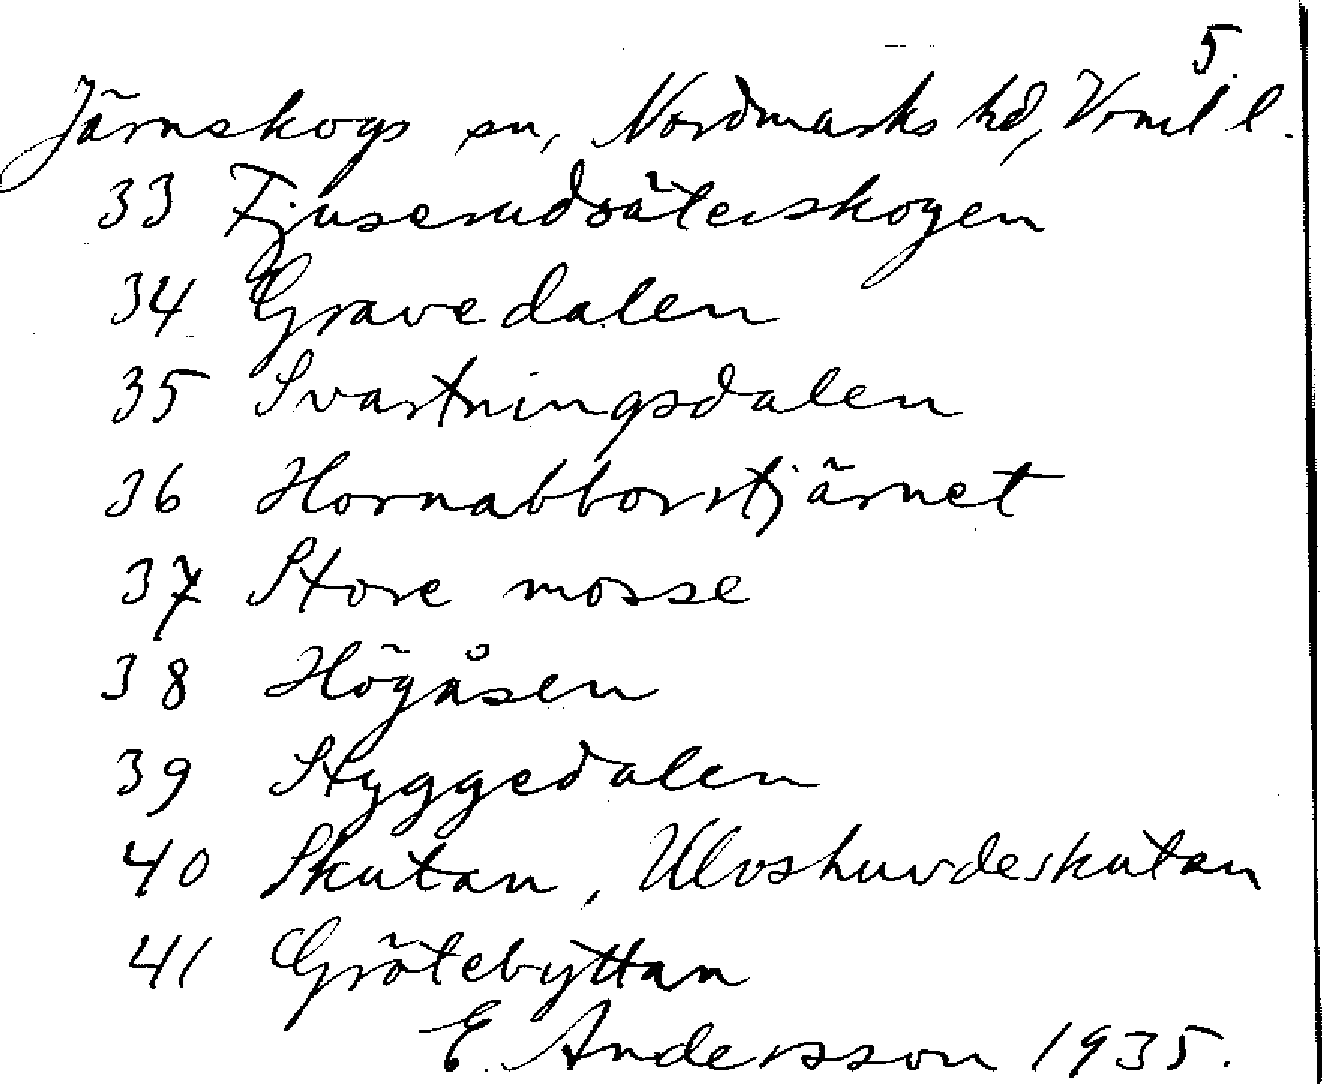 5.
Järnskogs sn, Nordmarks hd, Vrml l.
33 Fjuserudsäterskogen
34 Gravedalen
35 Svartningsdalen
36 Hornabborrtjärnet
37 Store mosse
38 Högåsen
39 Styggedalen
40 Skutan, Ulvshuvdeskutan
41 Grötebyttan
E. Andersson 1935.